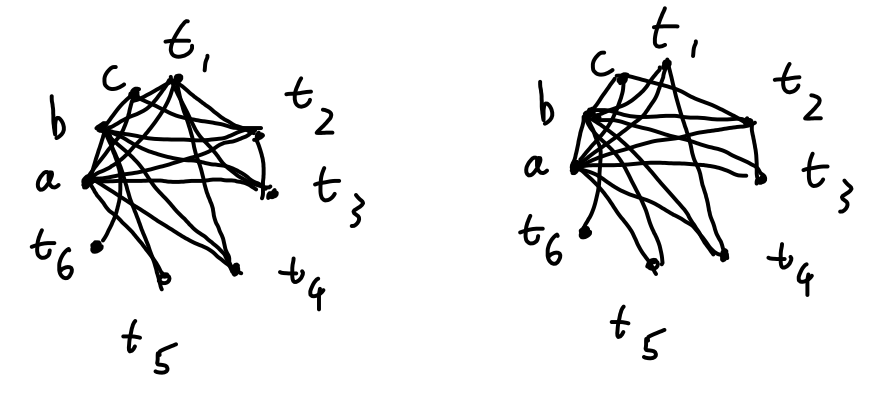 t₁
c
t₂
b
a
t₃
t₆
t₄
t₅
t₁
c
t₂
b
a
t₃
t₆
t₄
t₅